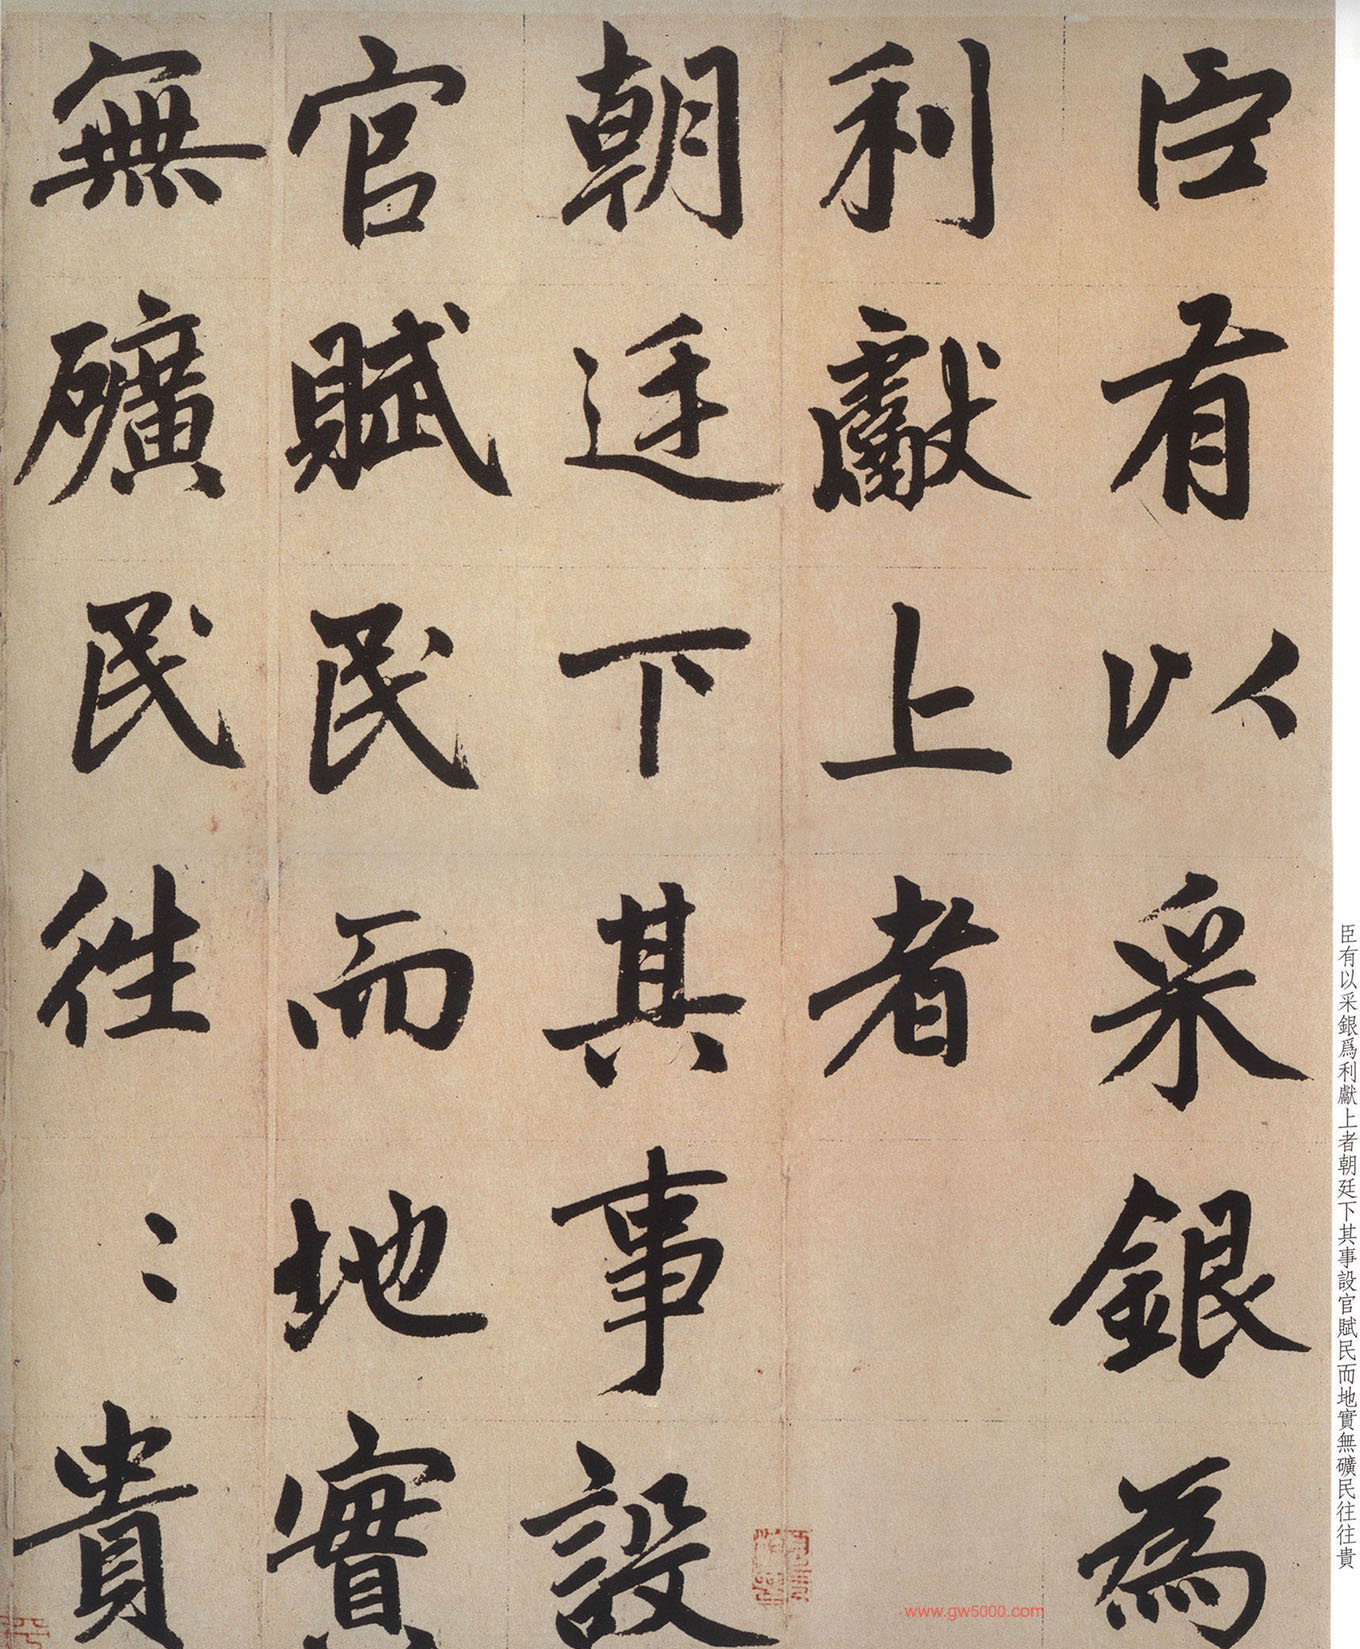 臣有以采銀為
利獻上者
朝廷下其事設
官賦民而地實
無礦民往〻貴
臣有以采銀爲利獻上者朝廷下其事設官賦民而地實無礦民往往貴
www.gw5000.com